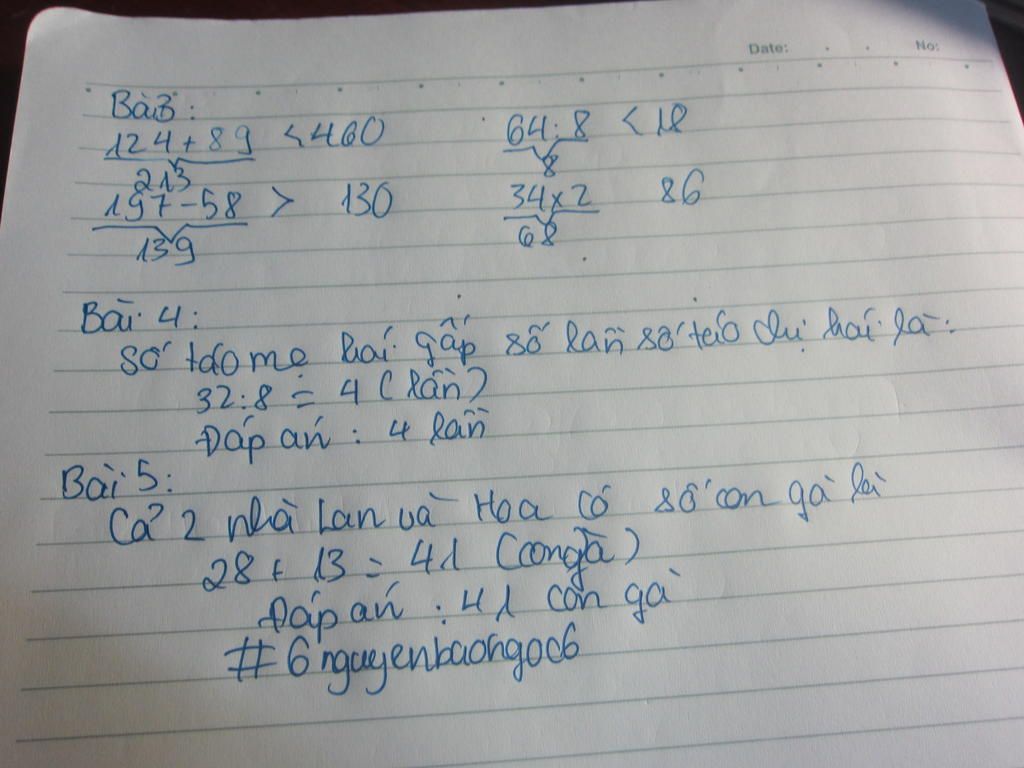 Date: No:
Bài 3:
124 + 89 < 460 64 : 8 < 18
213 8
197 - 58 > 130 34 x 2 86
139 68
Bài 4:
Số táo mẹ hái gấp số lần số táo chị hái là:
32 : 8 = 4 (lần)
Đáp án : 4 lần
Bài 5:
Cả 2 nhà Lan và Hoa có số con gà là
28 + 13 = 41 (con gà)
Đáp án : 41 con gà
#6nguyenbaongoc6